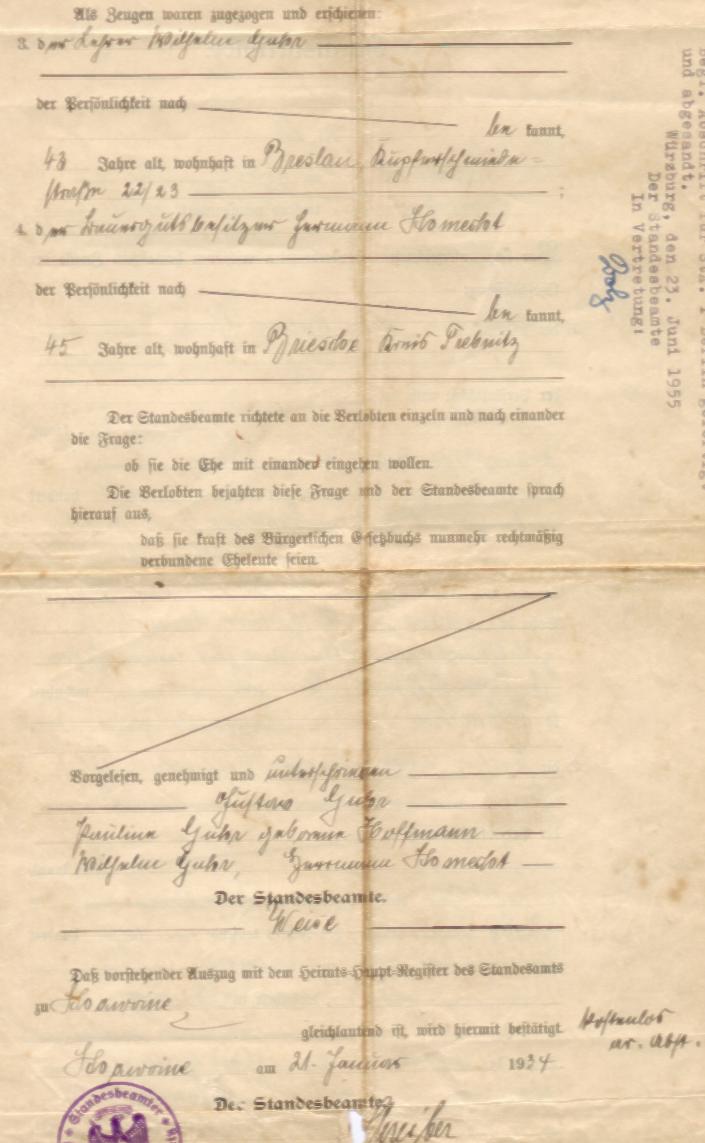 Als Zeugen waren zugezogen und erschienen:
3. der Lehrer Wilhelm Guhr
der Persönlichkeit nach
be kannt,
43 Jahre alt, wohnhaft in Breslau, Kupferschmiede-
straße 22/23 ;
4. der Bauergutsbesitzer Hermann
der Persönlichkeit nach
be kannt,
45 Jahre alt, wohnhaft in Briesche Kreis Trebnitz
Der Standesbeamte richtete an die Verlobten einzeln und nach einander
die Frage:
ob sie die Ehe mit einander eingehen wollen.
Die Verlobten bejahten diese Frage und der Standesbeamte sprach
hierauf aus,
daß sie kraft des Bürgerlichen Gesetzbuchs nunmehr rechtmäßig
verbundene Eheleute seien.
Vorgelesen, genehmigt und unterschrieben
Gustav Guhr
Pauline Guhr geborene Hoffmann
Wilhelm Guhr, Herrmann
Der Standesbeamte.
Weise
Daß vorstehender Auszug mit dem Heirats-Haupt-Register des Standesamts
zu Kawoine
gleichlautend ist, wird hiermit bestätigt.
Kawoine am 21. Januar 1934
Der Standesbeamte
Schreiber
Standesbeamter
und abgesandt.
Würzburg, den 23. Juni 1955
Der Standesbeamte
In Vertretung:
Kostenlos
ar. Abst.